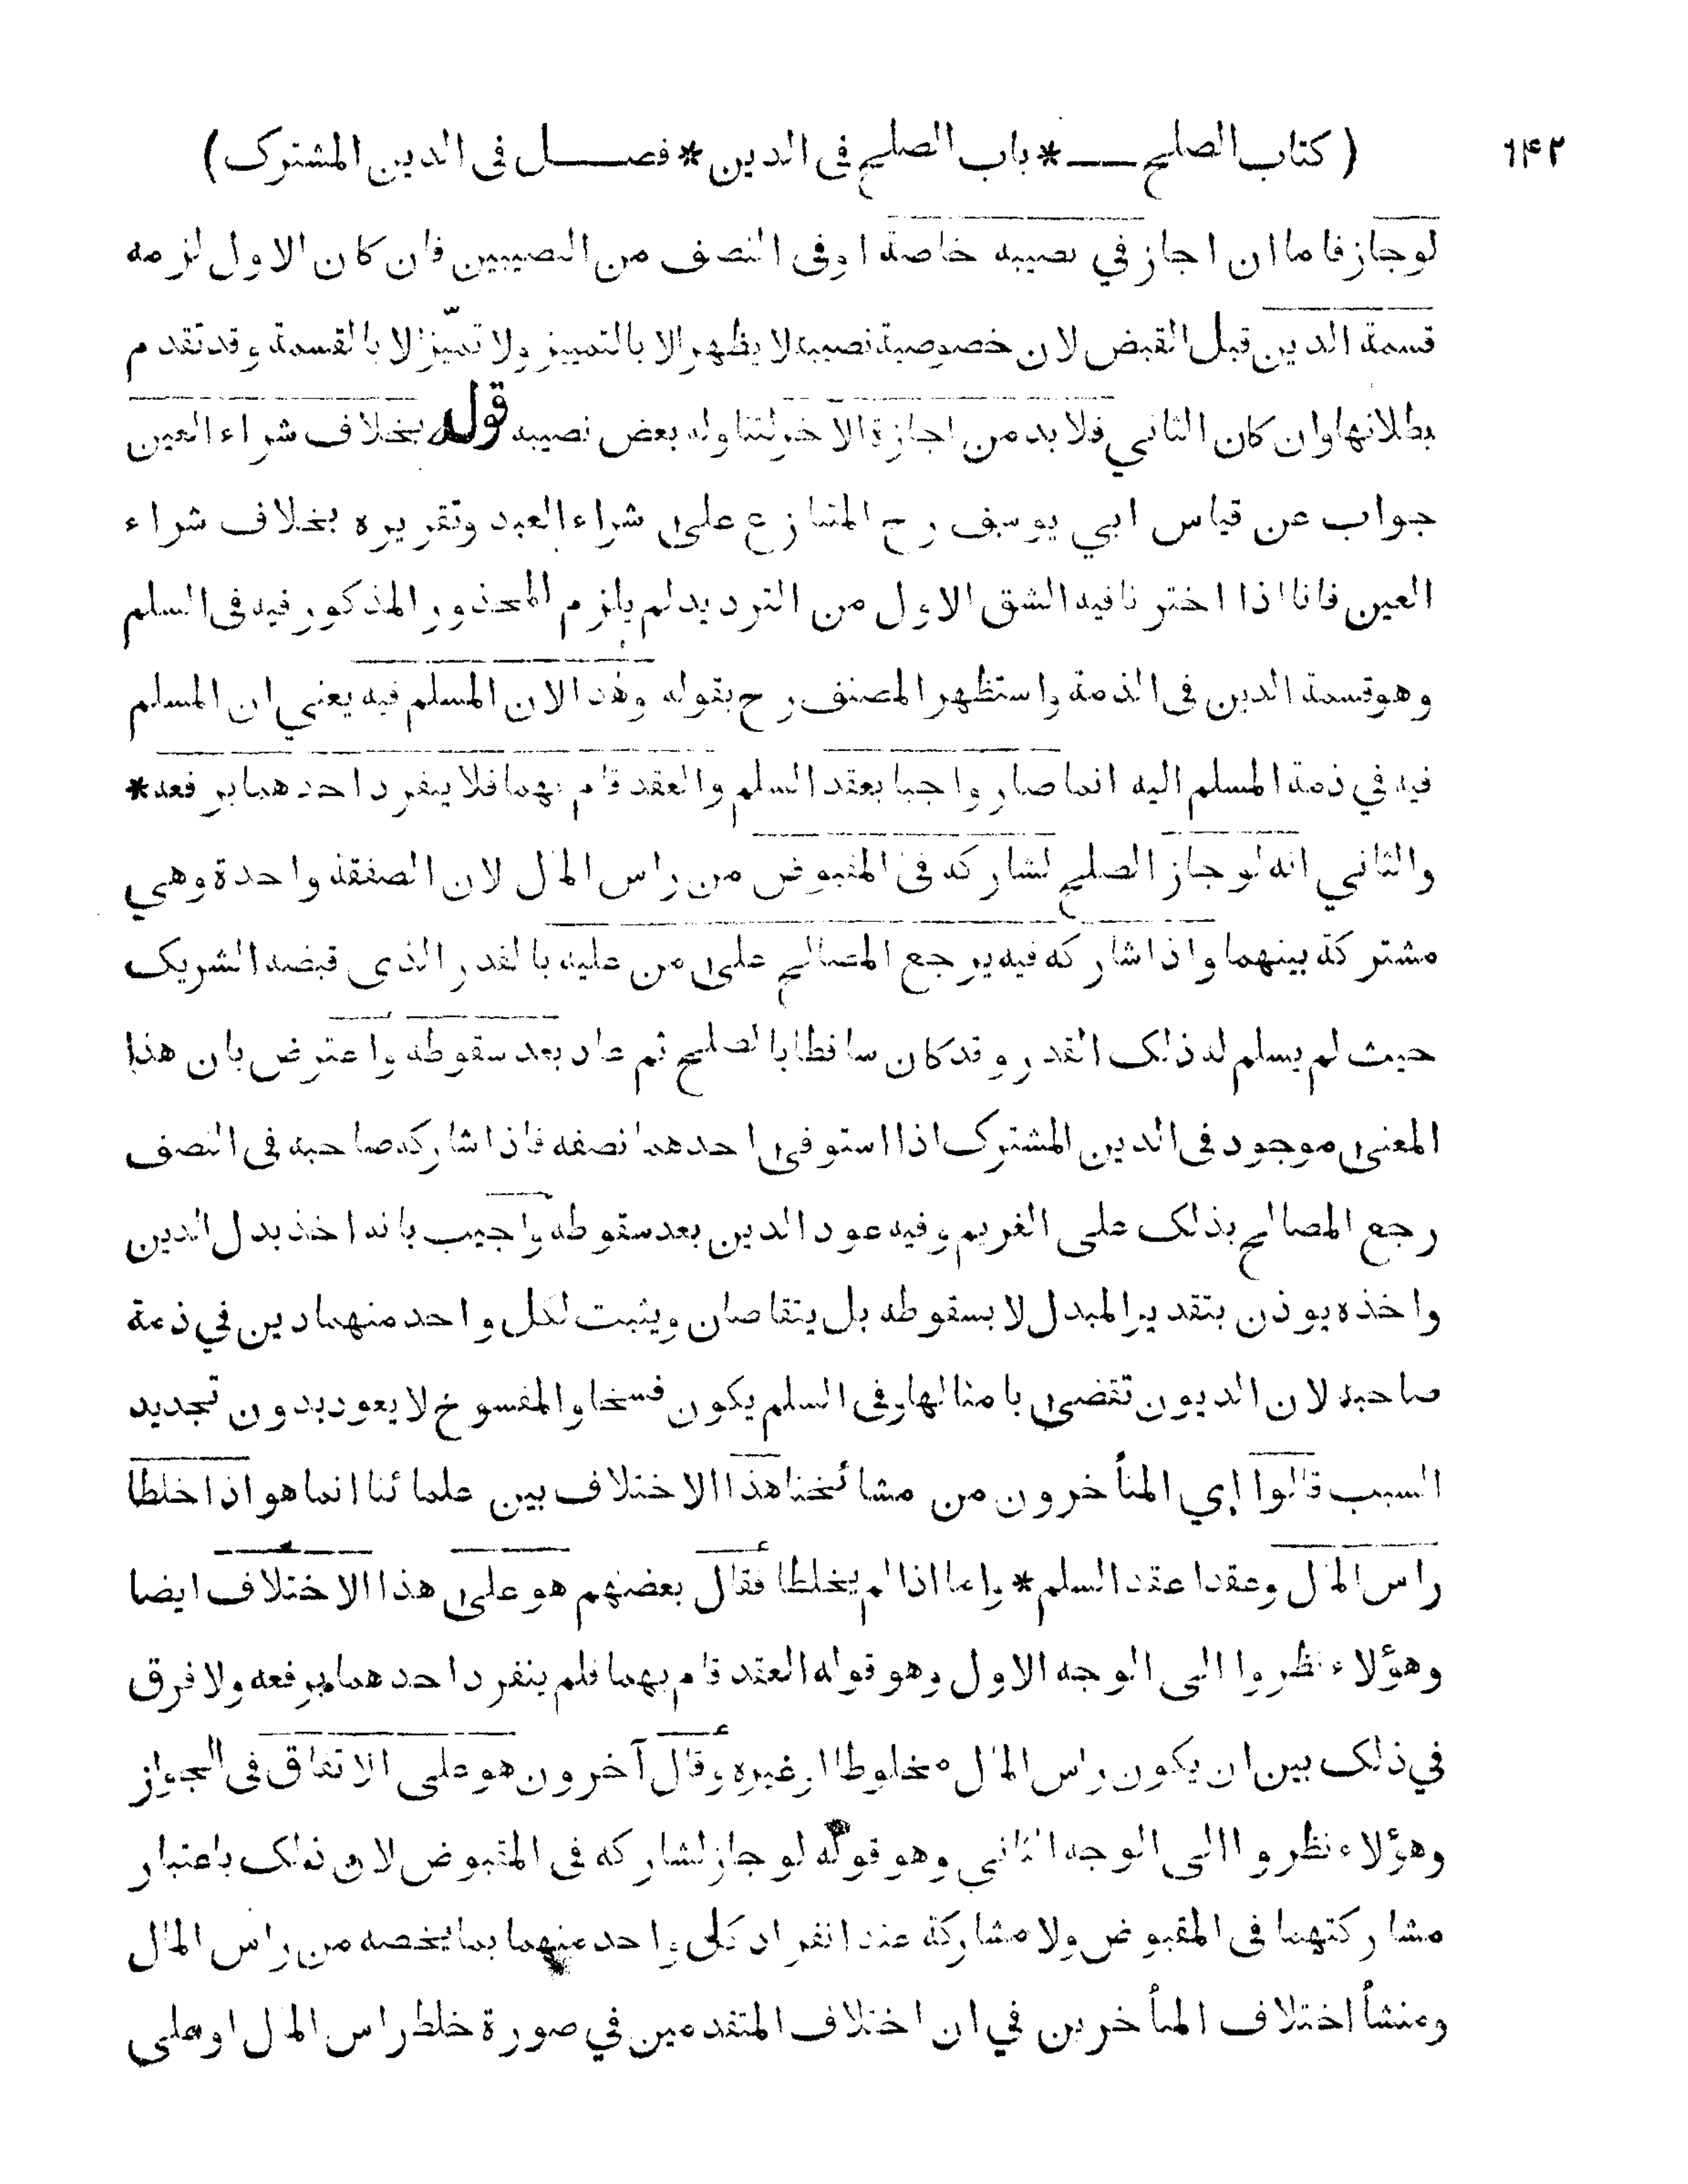 ٦٤٢ ( كتاب الصلح — * باب الصلح فى الدين * فصل فى الدين المشترك )
لوجاز فاما ان اجاز في نصيبه خاصة اوفى النصف من النصيبين فان كان الاول لزمه
قسمة الدين قبل القبض لان خصوصية نصيبه لا يظهر الا بالتمييز ولا تميّز الا بالقسمة وقد تقدم
بطلانها وان كان الثاني فلا بد من اجازة الآخر لتناوله بعض نصيبه قوله بخلاف شراء العين
جواب عن قياس ابي يوسف رح المتنازع على شراء العبد وتقريره بخلاف شراء
العين فانا اذا اخترنا فيه الشق الاول من الترديد لم يلزم المحذور المذكور فيه فى السلم
وهو قسمة الدين فى الذمة واستظهر المصنف رح بقوله وهذا لان المسلم فيه يعني ان المسلم
فيه في ذمة المسلم اليه انما صار واجبا بعقد السلم والعقد قام بهما فلا ينفرد احدهما برفعه *
والثاني انه لو جاز الصلح لشاركه فى المقبوض من راس المال لان الصفقة واحدة وهي
مشتركة بينهما واذا شاركه فيه يرجع المصالح على من عليه بالقدر الذى قبضه الشريك
حيث لم يسلم له ذلك القدر وقد كان ساقطا بالصلح ثم عاد بعد سقوطه واعترض بان هذا
المعنى موجود فى الدين المشترك اذا استوفى احدهما نصفه فاذا شاركه صاحبه فى النصف
رجع المصالح بذلك على الغريم وفيه عود الدين بعد سقوطه واجيب بانه اخذ بدل الدين
واخذه يوذن بتقدير المبدل لا بسقوطه بل يتقاصان ويثبت لكل واحد منهما دين في ذمة
صاحبه لان الديون تقضى بامثالها وفى السلم يكون فسخا والمفسوخ لا يعود بدون تجديد
السبب قالوا اي المتأخرون من مشائخنا هذا الاختلاف بين علمائنا انما هو اذا خلطا
راس المال وعقدا عقد السلم * واما اذا لم يخلطا فقال بعضهم هو على هذا الاختلاف ايضا
وهؤلاء نظروا الى الوجه الاول وهو قوله العقد قام بهما فلم ينفرد احدهما برفعه ولا فرق
في ذلك بين ان يكون راس المال مخلوطا او غيره وقال آخرون هو على الاتفاق فى الجواز
وهؤلاء نظروا الى الوجه الثاني وهو قوله لو جاز لشاركه فى المقبوض لان ذلك باعتبار
مشاركتهما فى المقبوض ولا مشاركة عند انفراد كل واحد منهما بما يخصه من راس المال
ومنشأ اختلاف المتأخرين في ان اختلاف المتقدمين في صورة خلط راس المال او على